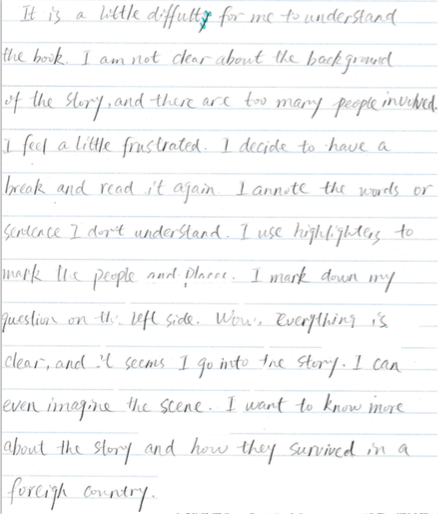 It is a little diffulty for me to understand
the book. I am not clear about the background
of the story, and there are too many people involved.
I feel a little frustrated. I decide to have a
break and read it again. I annote the words or
sentence I don't understand. I use highlighters to
mark the people and places. I mark down my
question on the left side. Wow, Everything is
clear, and it seems I go into the story. I can
even imagine the scene. I want to know more
about the story and how they survived in a
foreigh country.